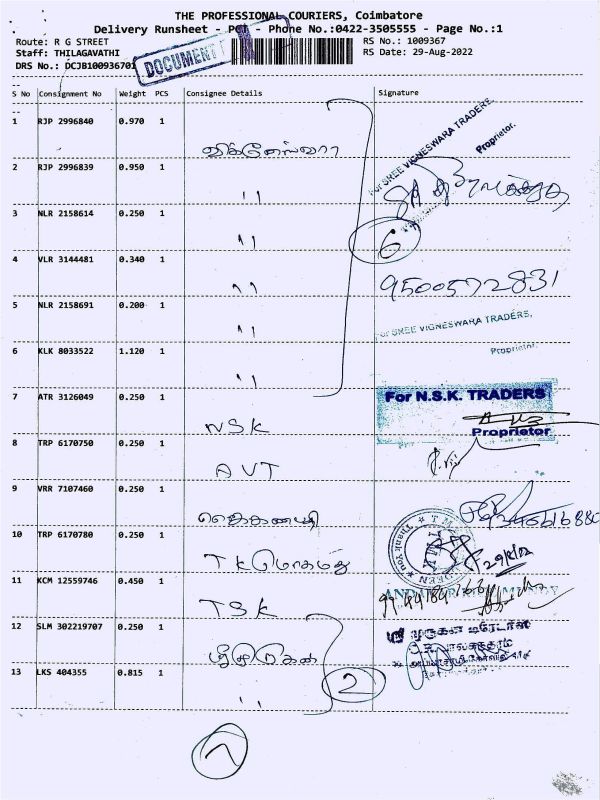 THE PROFESSIONAL COURIERS, Coimbatore
Delivery Runsheet - PCT - Phone No.:0422-3505555 - Page No.:1
Route: R G STREET RS No.: 1009367
Staff: THILAGAVATHI RS Date: 29-Aug-2022
DRS No.: DCJB100936701
DOCUMENT
S No Consignment No Weight PCS Consignee Details Signature
1 RJP 2996840 0.970 1
விக்னேஸ்வரா
For SREE VIGNESWARA TRADERS,
Proprietor.
2 RJP 2996839 0.950 1
"
3 NLR 2158614 0.250 1
"
6
4 VLR 3144481 0.340 1
"
9500572831
5 NLR 2158691 0.200 1
"
For SREE VIGNESWARA TRADERS,
Proprietor.
6 KLK 8033522 1.120 1
"
7 ATR 3126049 0.250 1
NSK
For N.S.K. TRADERS
Proprietor
8 TRP 6170750 0.250 1
AVT
9 VRR 7107460 0.250 1
10 TRP 6170780 0.250 1
Thank You
11 KCM 12559746 0.450 1
TSK
12 SLM 302219707 0.250 1
ஸ்ரீ முருகன் டிரேடர்ஸ்
13 LKS 404355 0.815 1
"
2
7